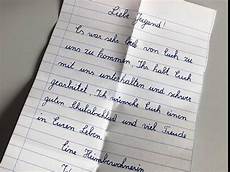 Liebe Jugend!
Es war sehr lieb von Euch
zu uns zu kommen. Ihr habt Euch
mit uns unterhalten und schwer
gearbeitet. Ich wünsche Euch einen
guten Schulabschluss und viel Freude
in Euren Leben.
Eine Heimbewohnerin